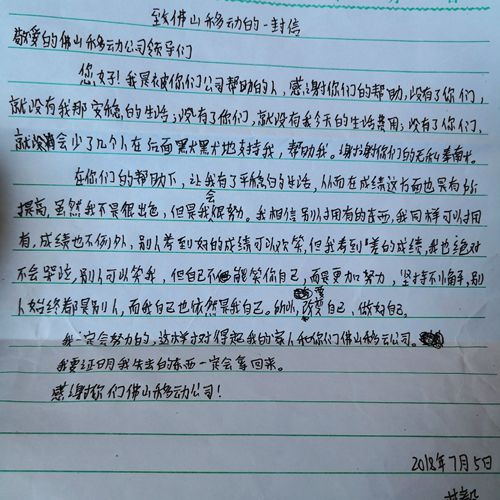 致佛山移动的一封信
敬爱的佛山移动公司领导们
您好！我是被你们公司帮助的人，感谢你们的帮助，没有了你们，
就没有我那安稳的生活；没有了你们，就没有我今天的生活费用；没有了你们，
就会少了几个人在后面默默地支持我，帮助我。谢谢你们的无私奉献。
在你们的帮助下，让我有了平稳的生活，从而在成绩这方面也采有所
提高，虽然我不是很出色，但是我会很努力。我相信别人拥有的东西，我同样可以拥
有，成绩也不例外，别人考到好的成绩可以欢笑，但我考到差的成绩，我也绝对
不会哭泣，别人可以笑我，但自己不能笑你自己，而要更加努力，坚持不懈，别
人始终都是别人，而我自己也依然是我自己。所以，要改变自己，做好自己。
我一定会努力的，这样才对得起我的家人和你们佛山移动公司。
我要证明我失去的东西一定会拿回来。
感谢你们佛山移动公司！
2018年7月5日